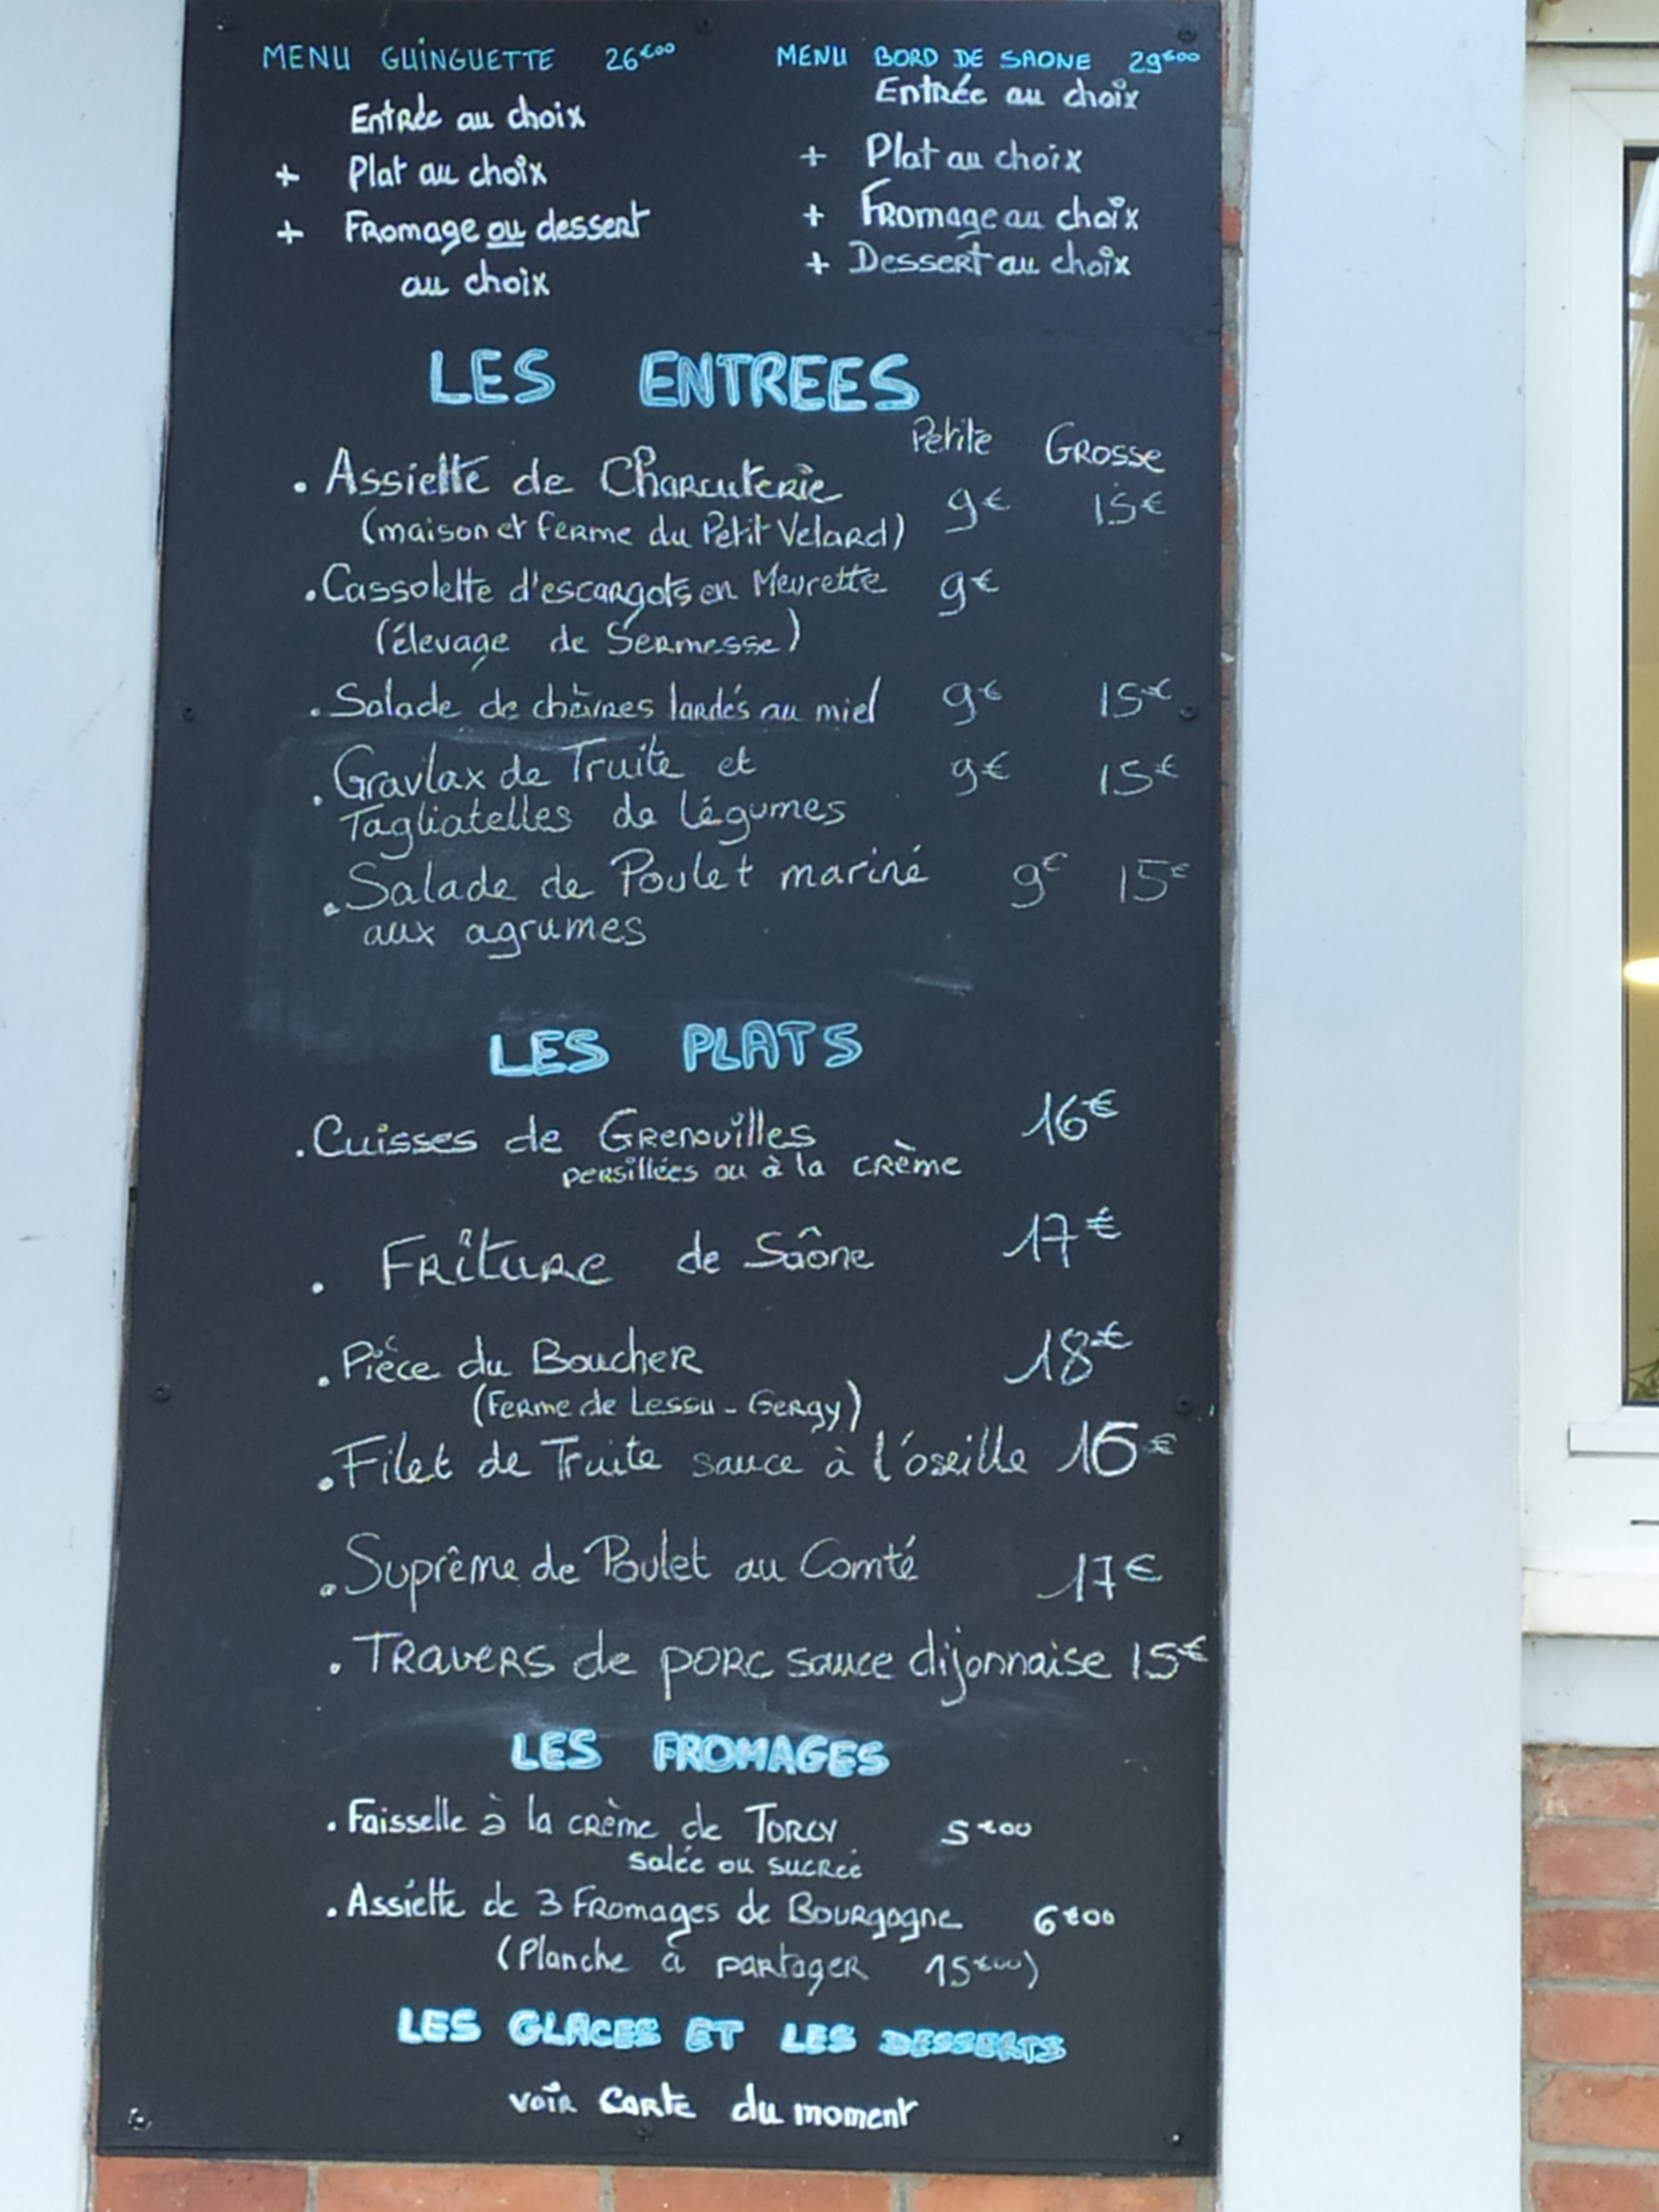 MENU GUINGUETTE 26€00
Entrée au choix
+ Plat au choix
+ Fromage ou dessert
au choix
MENU BORD DE SAONE 29€00
Entrée au choix
+ Plat au choix
+ Fromage au choix
+ Dessert au choix
LES ENTREES
Petite Grosse
. Assiette de Charcuterie 9€ 15€
(maison et ferme du Petit Velard)
. Cassolette d'escargots en Meurette 9€
(élevage de Sermesse)
. Salade de chèvres lardés au miel 9€ 15€
. Gravlax de Truite et 9€ 15€
Tagliatelles de légumes
. Salade de Poulet mariné 9€ 15€
aux agrumes
LES PLATS
. Cuisses de Grenouilles 16€
persillées ou à la crème
. Frîture de Saône 17€
. Piéce du Boucher 18€
(Ferme de Lessu - Gergy)
. Filet de Truite sauce à l'oseille 16€
. Suprême de Poulet au Comté 17€
. Travers de porc sauce dijonnaise 15€
LES FROMAGES
. Faisselle à la crème de Torcy 5€00
salée ou sucrée
. Assiette de 3 Fromages de Bourgogne 6€00
(Planche à partager 15€00)
LES GLACES ET LES DESSERTS
voir Carte du moment